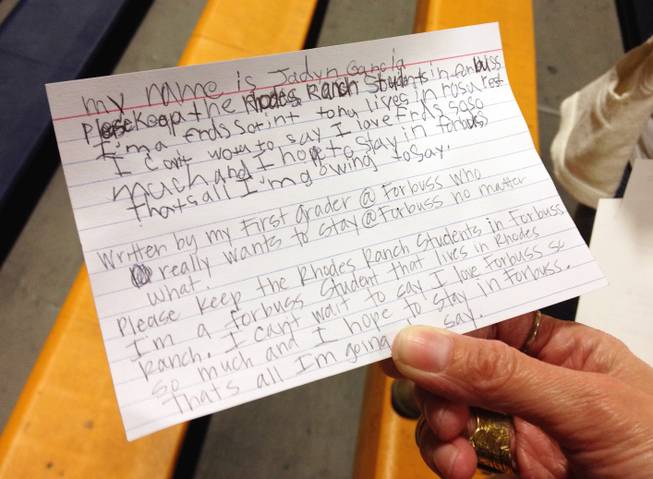 my name is Jadyn Garcia
Please keep the Rhodes Ranch Students in forbuss
I'm a
tony lives in
I Cant to say I love
much and I hope to stay in forbuss
thats all I'm gowing to say.
Written by my First grader @ Forbuss who
really wants to stay @ Forbuss no matter
what.
Please keep the Rhodes Ranch Students in Forbuss
I'm a Forbuss Student that lives in Rhodes
Ranch. I can't wait to say I love Forbuss so
so much and I hope to stay in Forbuss.
thats all I'm going say.